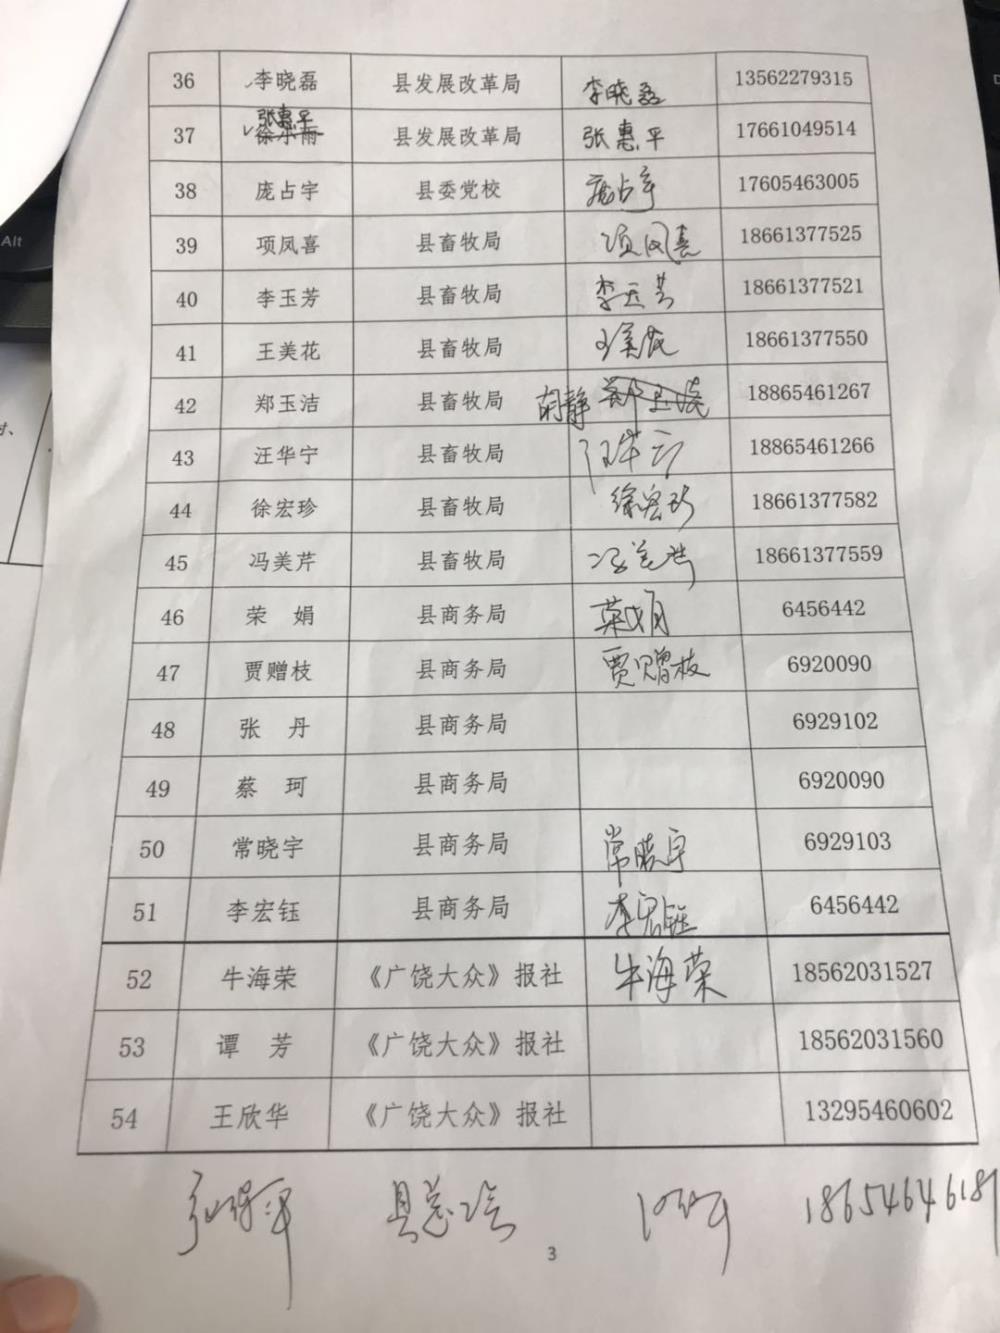 36 李晓磊 县发展改革局 李晓磊 13562279315
张惠平
37 徐小雨 县发展改革局 张惠平 17661049514
38 庞占宇 县委党校 庞占宇 17605463005
39 项凤喜 县畜牧局 项凤喜 18661377525
40 李玉芳 县畜牧局 李玉芳 18661377521
41 王美花 县畜牧局 王美花 18661377550
42 郑玉洁 县畜牧局 胡静 郑玉洁 18865461267
43 汪华宁 县畜牧局 汪华宁 18865461266
44 徐宏珍 县畜牧局 徐宏珍 18661377582
45 冯美芹 县畜牧局 冯美芹 18661377559
46 荣 娟 县商务局 荣娟 6456442
47 贾赠枝 县商务局 贾赠枝 6920090
48 张 丹 县商务局 6929102
49 蔡 珂 县商务局 6920090
50 常晓宇 县商务局 常晓宇 6929103
51 李宏钰 县商务局 李宏钰 6456442
52 牛海荣 《广饶大众》报社 牛海荣 18562031527
53 谭 芳 《广饶大众》报社 18562031560
54 王欣华 《广饶大众》报社 13295460602
县总工会
3
Alt